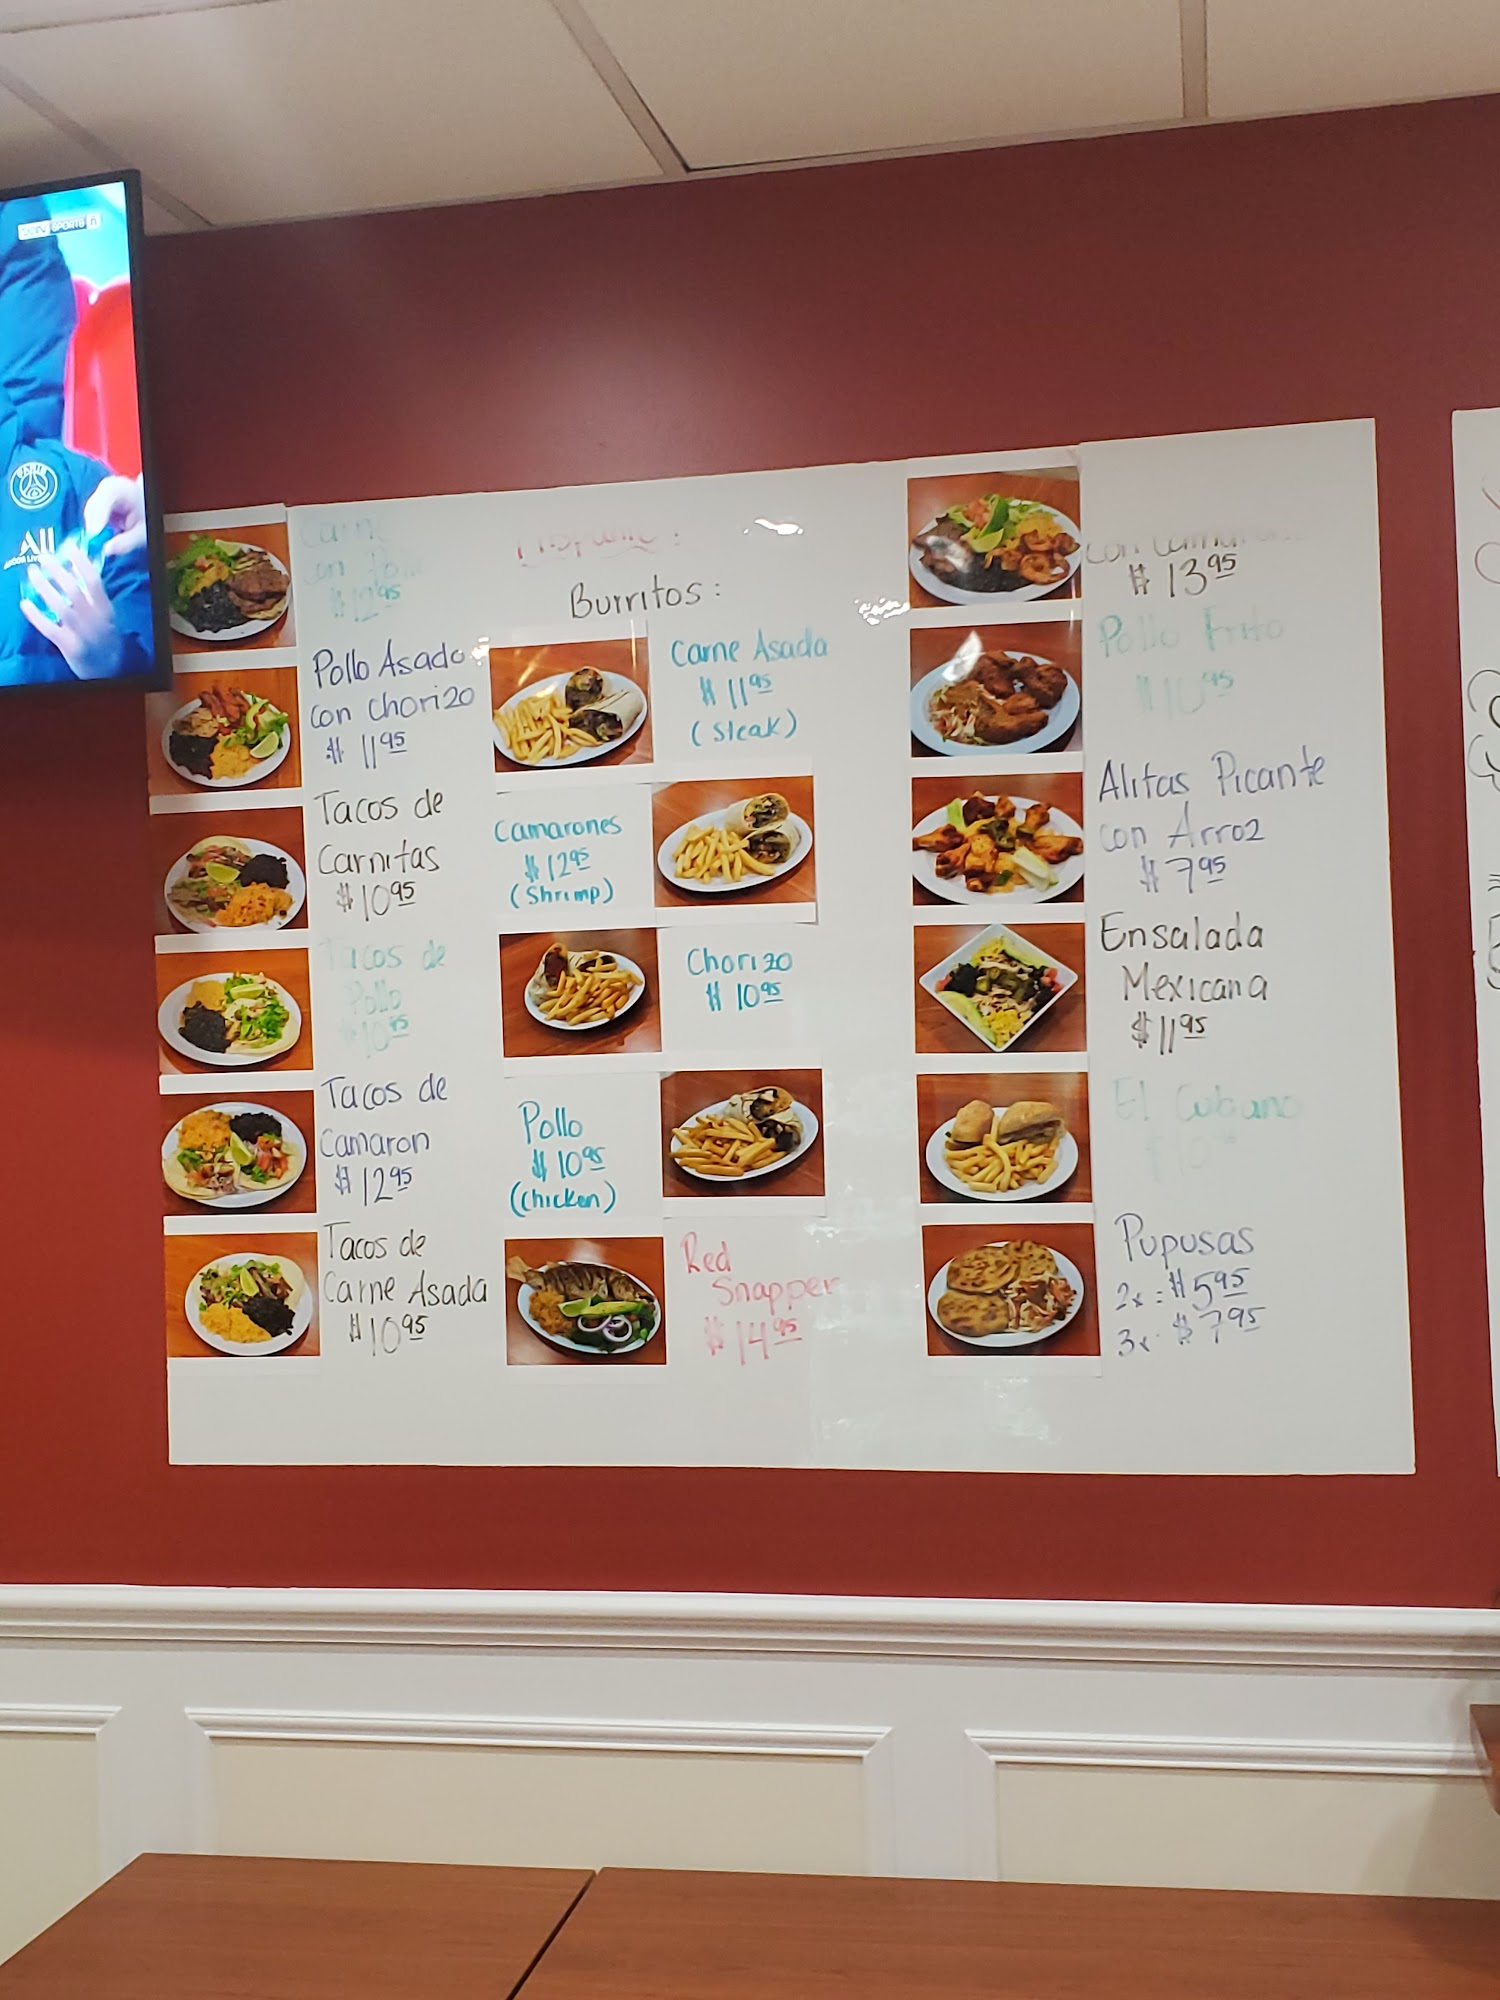 beIN SPORTS
PARIS
ALL
con Pollo
$12.95
Pollo Asado
con Chorizo
$11.95
Tacos de
Carnitas
$10.95
Tacos de
Pollo
$10.95
Tacos de
Camaron
$12.95
Tacos de
Carne Asada
$10.95
Burritos:
Carne Asada
$11.95
(Steak)
Camarones
$12.95
(Shrimp)
Chorizo
$10.95
Pollo
$10.95
(Chicken)
Red
Snapper
$14.95
con
$13.95
Pollo Frito
$10.95
Alitas Picante
con Arroz
$7.95
Ensalada
Mexicana
$11.95
El Cubano
Pupusas
2x: $5.95
3x: $7.95